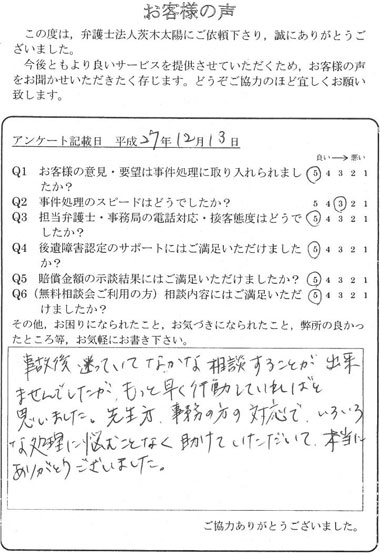 お客様の声
この度は、弁護士法人茨木太陽にご依頼下さり，誠にありがとうご
ざいました。
今後ともより良いサービスを提供させていただくため、お客様の声
をお聞かせいただきたく存じます。どうぞご協力のほど宜しくお願い
致します。
アンケート記載日 平成27年12月13日
良い→悪い
Q1 お客様の意見・要望は事件処理に取り入れられまし
たか？ 5 4 3 2 1
Q2 事件処理のスピードはどうでしたか？ 5 4 3 2 1
Q3 担当弁護士・事務局の電話対応・接客態度はどうでし
たか？ 5 4 3 2 1
Q4 後遺障害認定のサポートにはご満足いただけました
か？ 5 4 3 2 1
Q5 賠償金額の示談結果にはご満足いただけましたか？ 5 4 3 2 1
Q6（無料相談会ご利用の方）相談内容にはご満足いただ
けましたか？ 5 4 3 2 1
その他，お困りになられたこと，お気づきになられたこと，弊所の良かっ
たところ等，お気軽にお書き下さい。
事故後 迷っていてなかなか相談することが 出来
ませんでしたが、もっと早く行動していればと
思いました。先生方、事務の方の対応で、いろいろ
な処理に悩むことなく助けていただいて、本当に
ありがとうございました。
ご協力ありがとうございました。